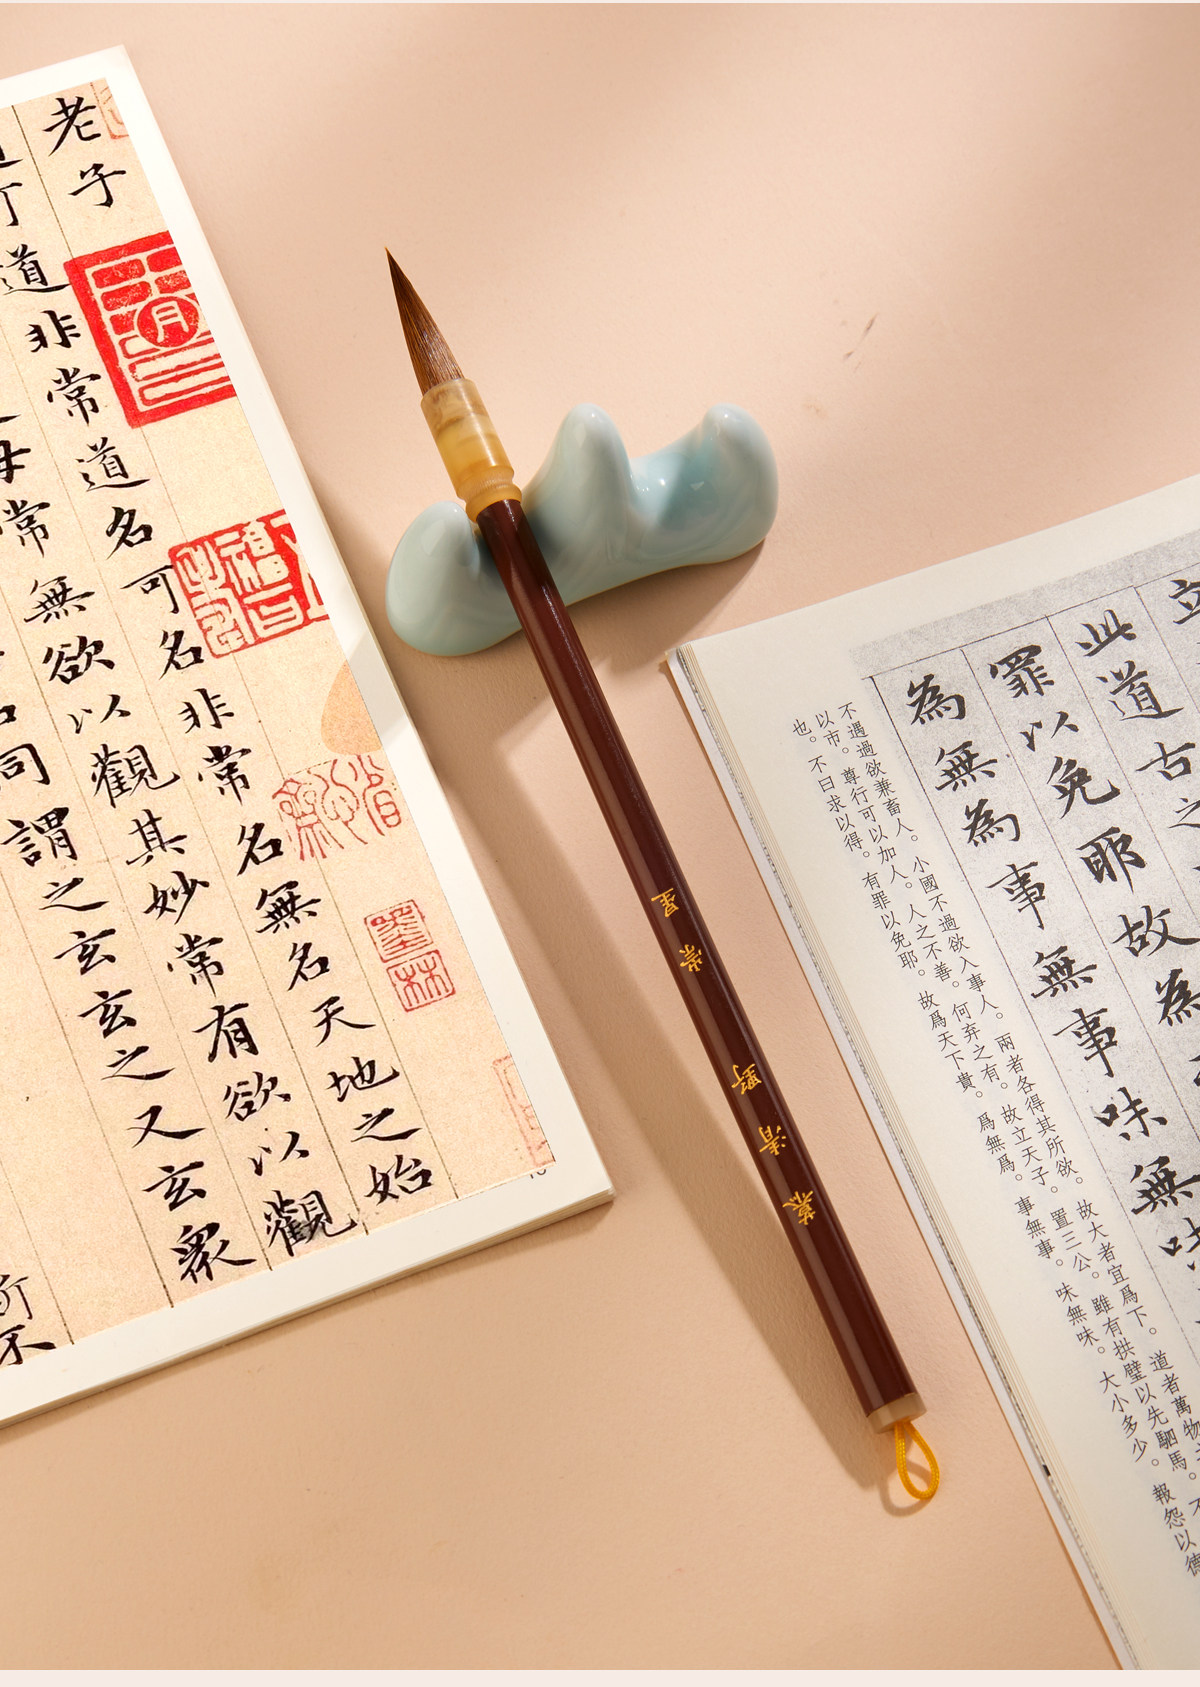 老子
道非常道名可名非常名無名天地之始
母常無欲以觀其妙常有欲以觀
同謂之玄玄之又玄衆
不
月
墨林
慕清野
崇星
立
此道古之
罪以免耶故為
為無為事無事味無味
不遇過欲兼畜人。小國不過欲入事人。兩者各得其所欲。故大者宜爲下。道者萬物
以市。尊行可以加人。人之不善。何弃之有。故立天子。置三公。雖有拱璧以先駟馬。不
也。不曰求以得。有罪以免耶。故爲天下貴。爲無爲。事無事。味無味。大小多少。報怨以德